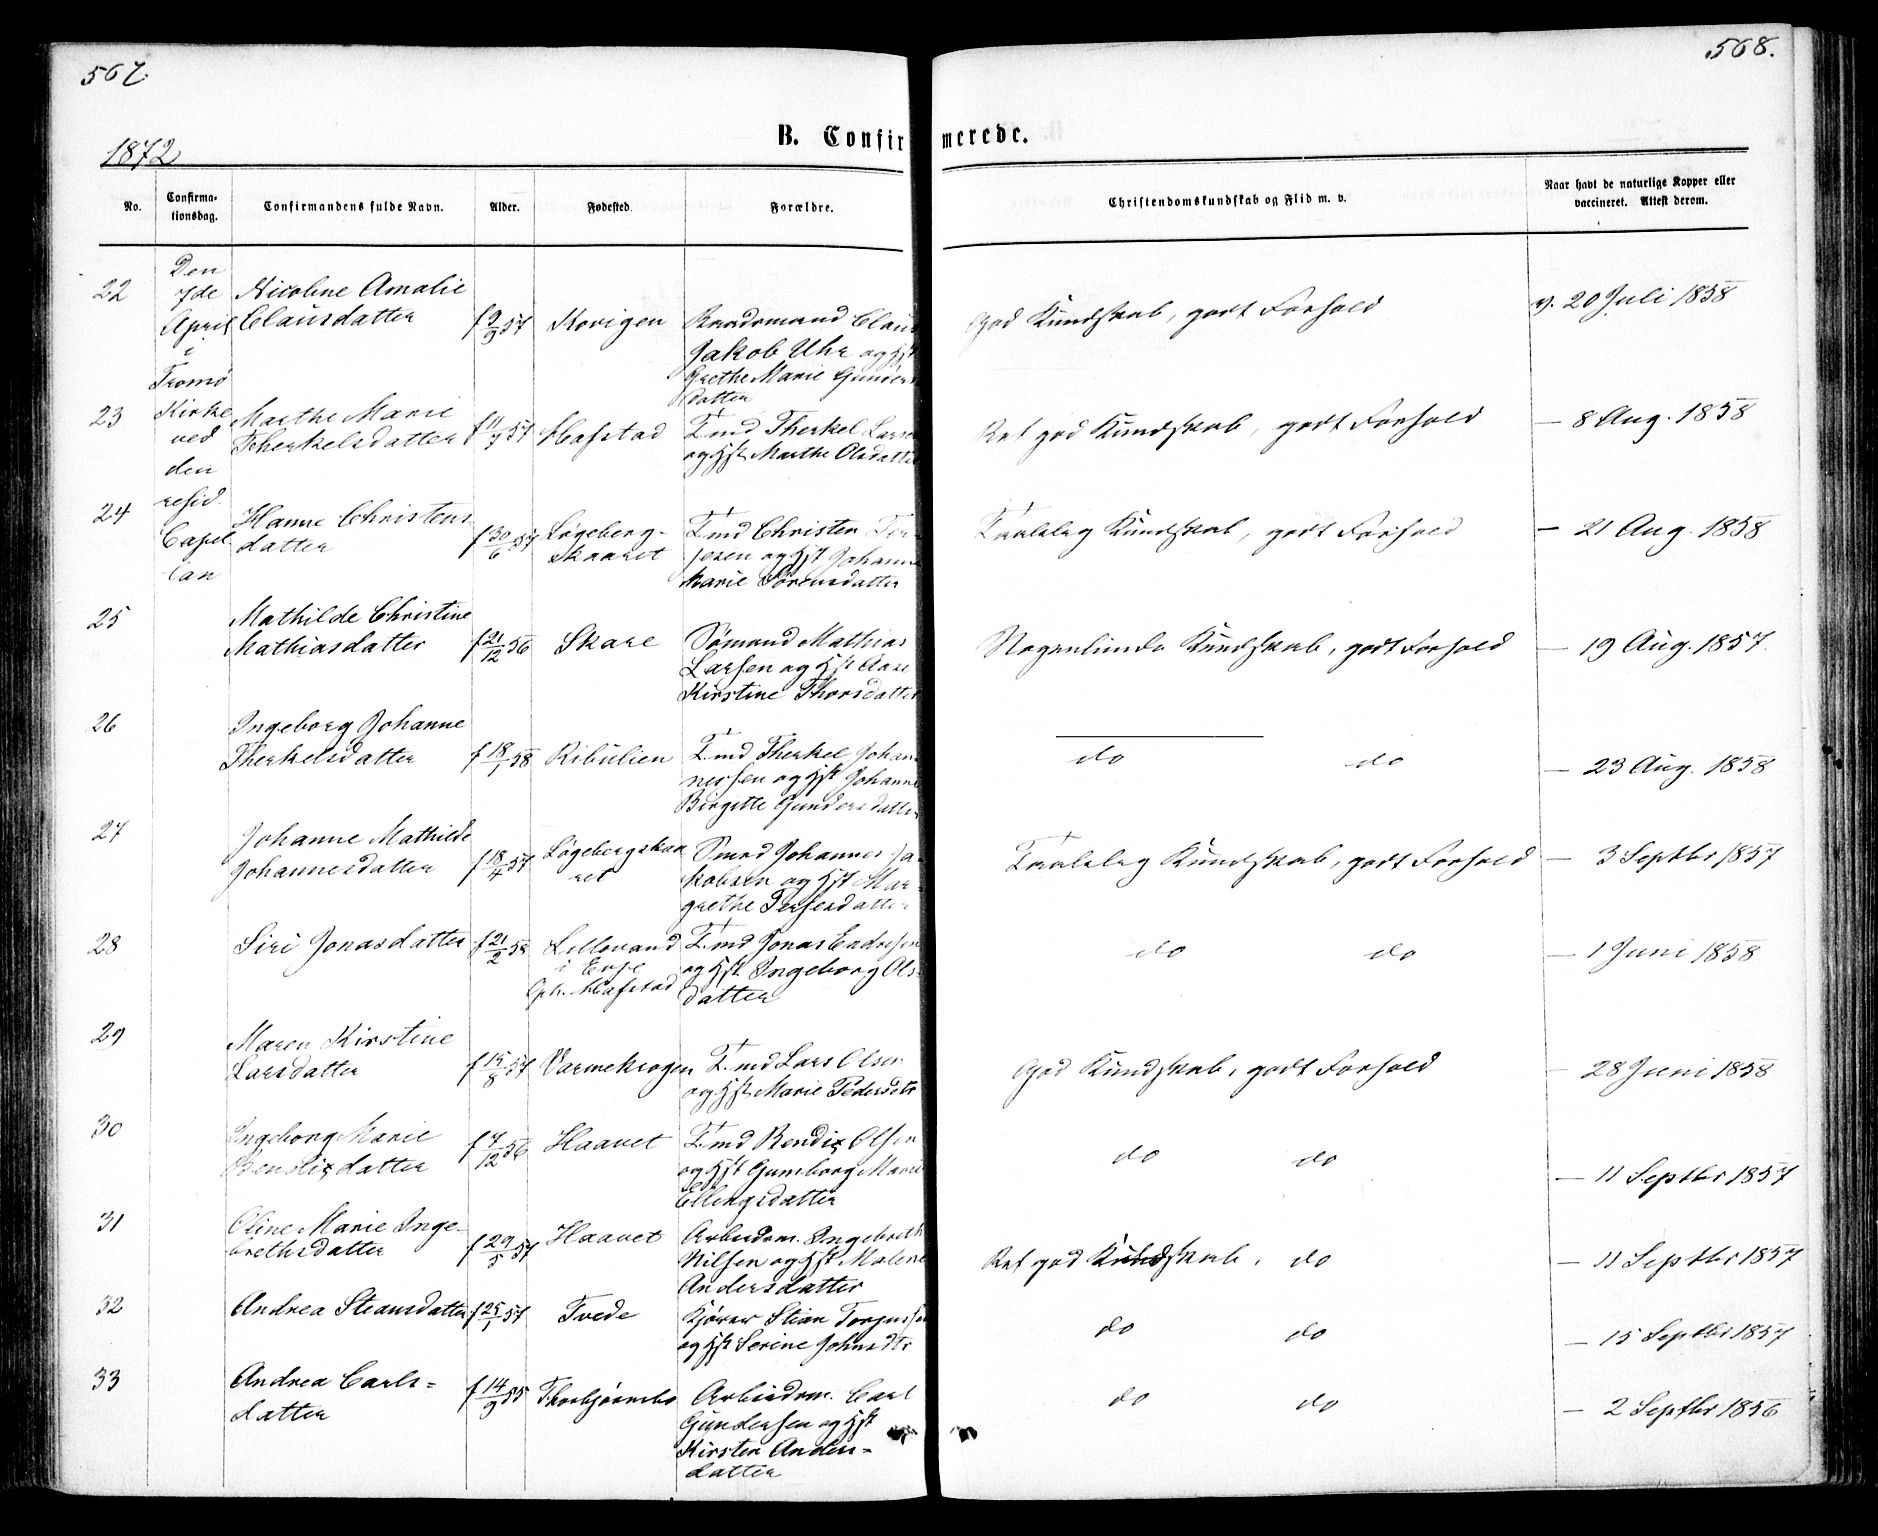 567.
568.
B. Confirmerede.
1872
No.
Confirma-
tionsdag.
Confirmandens fulde Navn.
Alder.
Fødested.
Forældre.
Christendomskundskab og Flid m. v.
Naar havt de naturlige Kopper eller
vaccineret. Attest derom.
Den
7de
April
i
Tromø
Kirke
ved
den
resid.
Capel
lan
22
Nicoline Amalie
Clausdatter
f 9/9 57
Kovigen
Baadsmand Claus
Jakob Uhr og Hst
Grethe Marie Gunders
datter
God Kundskab, godt Forhold
v. 20 Juli 1858
23
Marthe Marie
Therkelsdatter
f 11/7 57
Hafstad
T. md Therkel Larsen
og Hst Marthe Olsdatter
Ret god Kundskab, godt Forhold
— 8 Aug. 1858
24
Hanne Christens
datter
f 30/6 57
Løgeberg-
skaaret
T. md Christen Ter-
jesen og Hst Johanne
Marie Sørensdatter
Taalelig Kundskab, godt Forhold
— 21 Aug. 1858
25
Mathilde Christine
Mathiasdatter
f 21/12 56
Skare
Sømand Mathias
Larsen og Hst Aase
Kirstine Thorsdatter
Nogenlunde Kundskab, godt Forhold
— 19 Aug. 1857.
26
Ingeborg Johanne
Therkelsdatter
f 18/1 58
Ribulien
T. md Therkel Johan
nessen og Hst Johanne
Birgitte Gundersdatter
do do
— 23 Aug. 1858
27
Johanne Mathilde
Johannesdatter
f 18/4 57
Løgebergskaa
ret
Smed Johannes Ja-
kobsen og Hst Mar-
grethe Terjesdatter
Taalelig Kundskab, godt Forhold
— 3 Septbr 1857
28
Siri Jonasdatter
f 21/2 58
Lillevand
i
Oph. Hafstad
T. md Jonas Endresen
og Hst Ingeborg Ols-
datter
do do
— 1 Juni 1858
29
Maren Kirstine
Larsdatter
f 15/8 57
Varmekrogen
T. md Lars Olsen
og Hst Marie Pedersdtr
God Kundskab, godt Forhold
— 28 Juni 1858
30
Ingeborg Marie
Bendixdatter
f 7/12 56
Haavet
T. md Bendix Olsen
og Hst Gunborg Marie
Ellingsdatter
do do
— 11 Septbr 1857
31
Oline Marie Inge-
brethsdatter
f 29/5 57
Haavet
Arbeidsm. Ingebreth
Nilsen og Hst Malene
Andersdatter
Ret god Kundskab, do
— 11 Septbr 1857
32
Andrea Steansdatter
f 25/1 57
Tvede
Kjører Stian Torjussen
og Hst Serine Johnsdtr
do do
— 15 Septbr 1857
33
Andrea Carls-
datter
f 14/9 55
Thorbjørnsbo
Arbeidsm. Carl
Gundersen og Hst
Kirsten Anders-
datter
do do
— 2 Septbr 1856